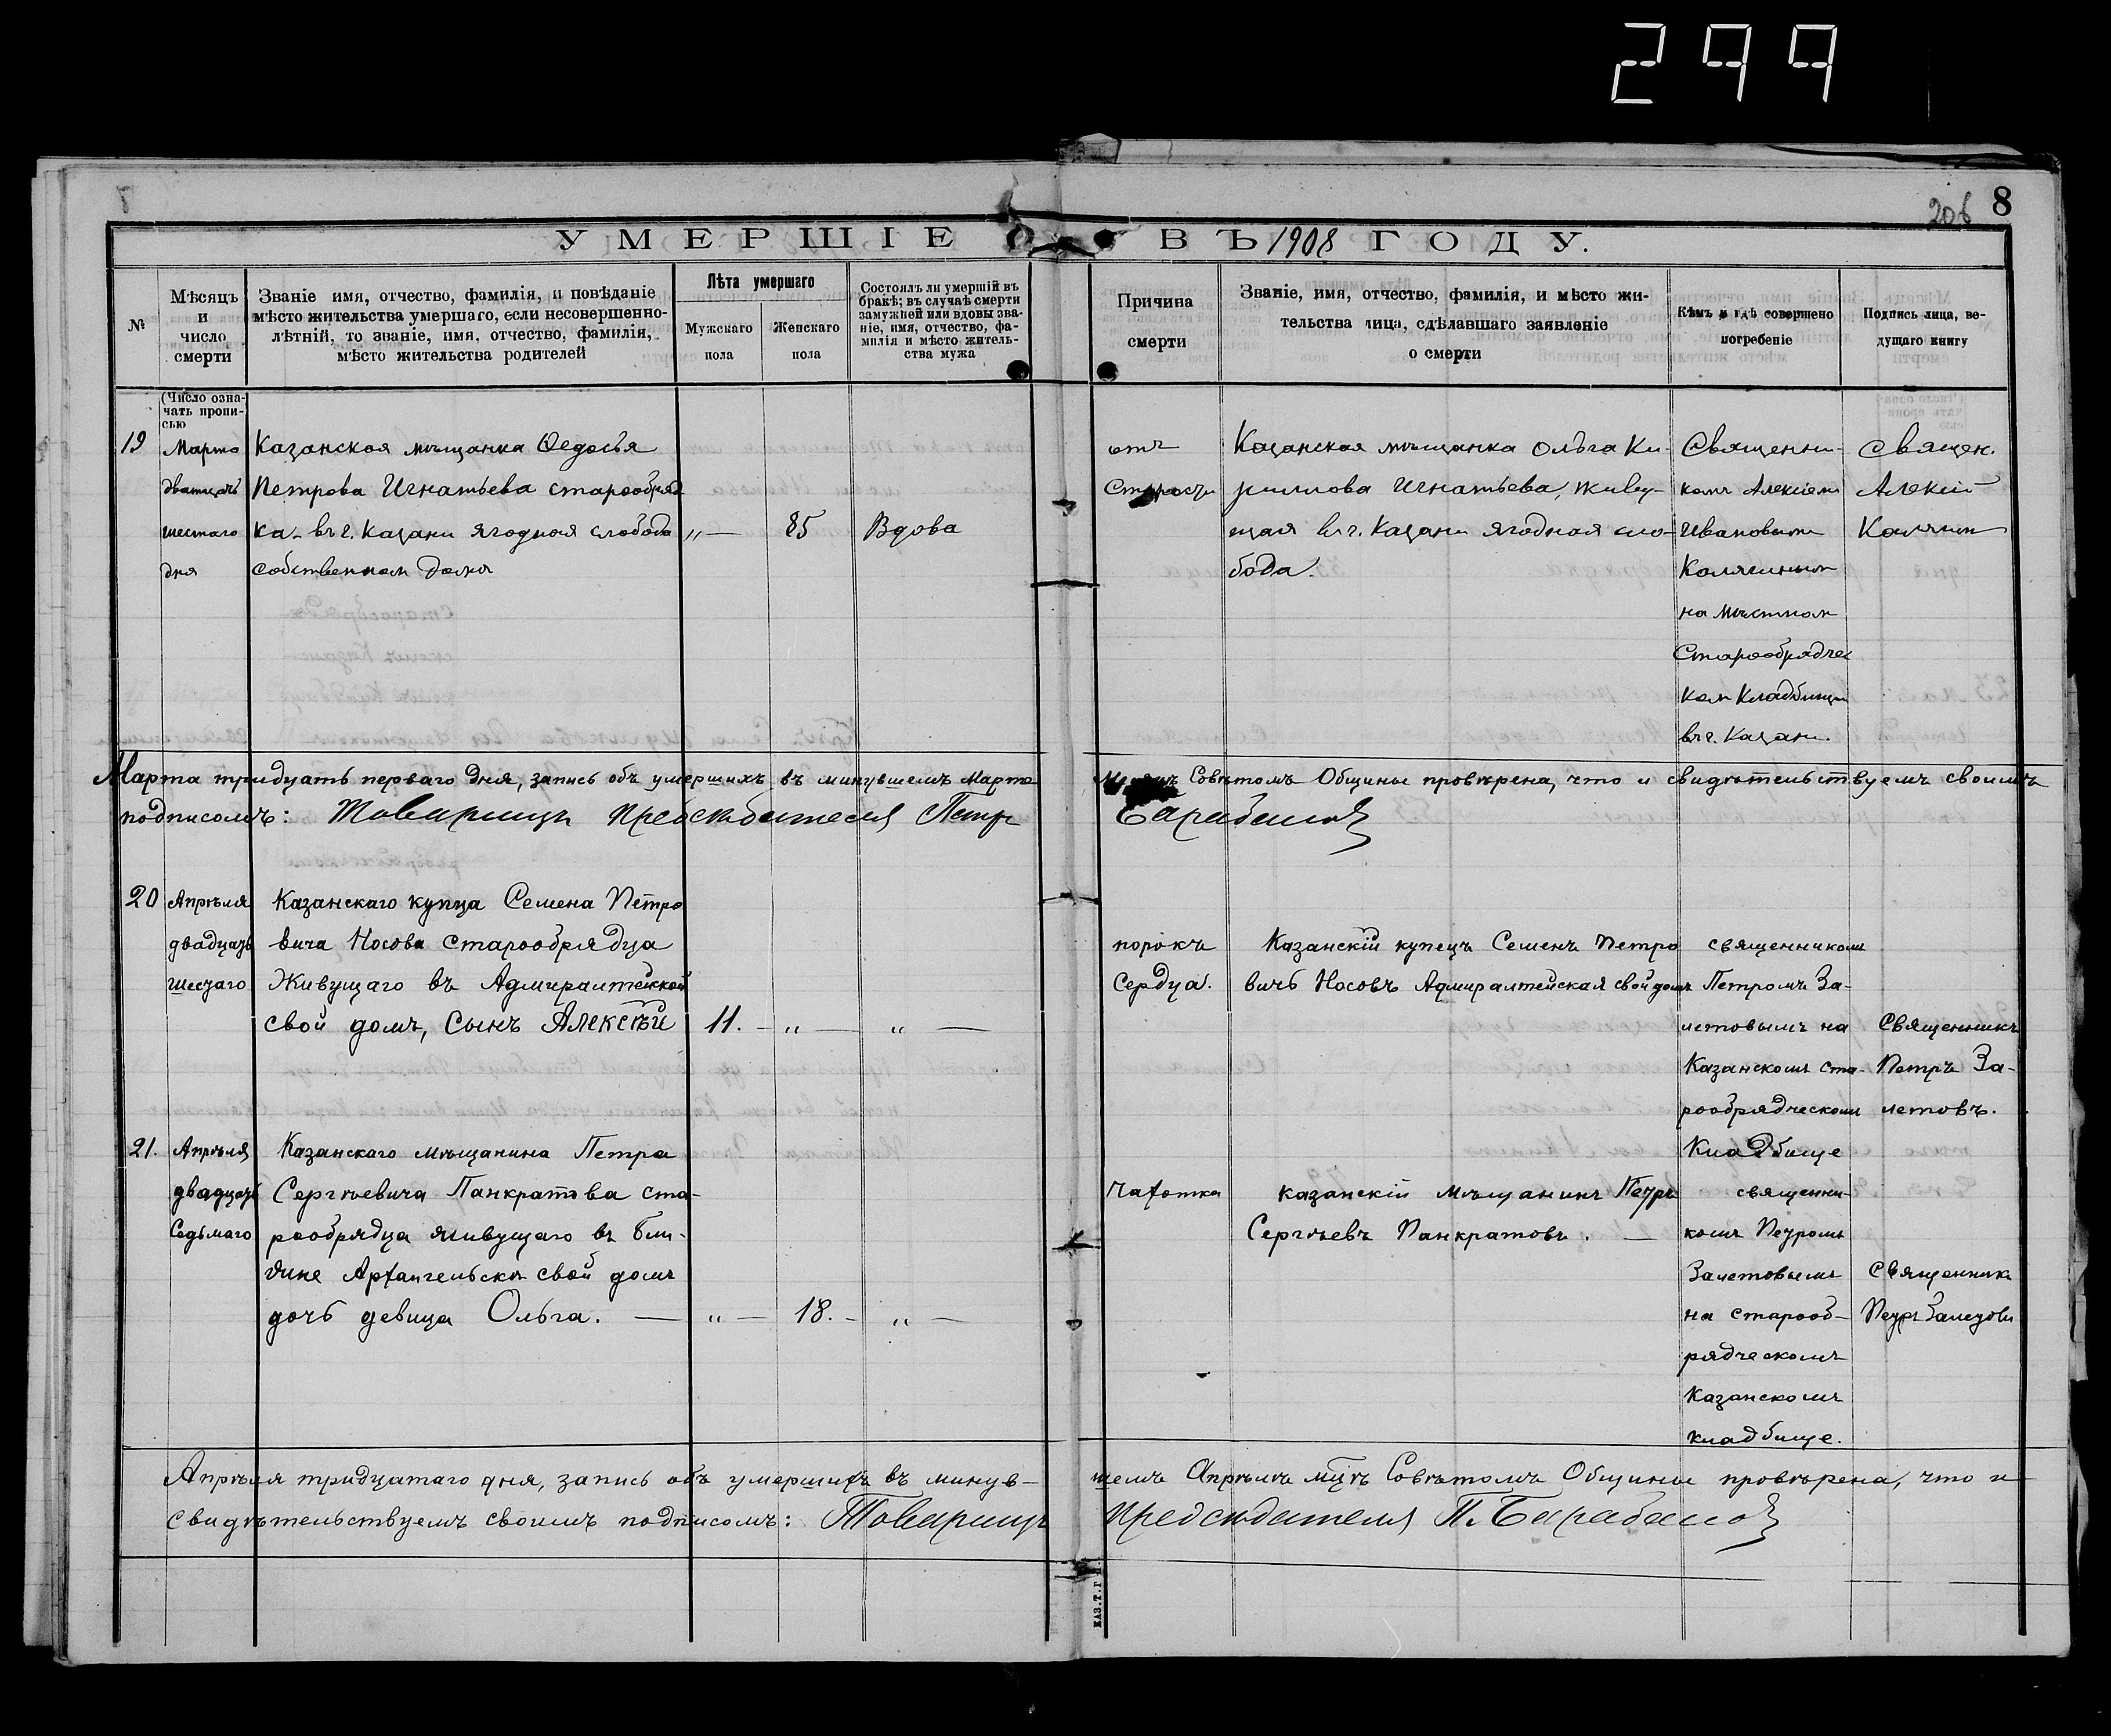 299
206 8
УМЕРШІЕ ВЪ 1908 ГОДУ.
№
Мѣсяцъ
и
число
смерти
Званіе имя, отчество, фамилія, и повѣданіе
мѣсто жительства умершаго, если несовершенно-
лѣтній, то званіе, имя, отчество, фамилія,
мѣсто жительства родителей
Лѣта умершаго
Мужскаго
пола
Женскаго
пола
Состоялъ ли умершій въ
бракѣ; въ случаѣ смерти
замужней или вдовы зва-
ніе, имя, отчество, фа-
милія и мѣсто житель-
ства мужа
Причина
смерти
Званіе, имя, отчество, фамилія, и мѣсто жи-
тельства лица, сдѣлавшаго заявленіе
о смерти
Кѣмъ и гдѣ совершено
погребеніе
Подпись лица, ве-
дущаго книгу
(Число озна-
чать пропи-
сью
19
Марта
дватцать
шестаго
дня
Казанская мѣщанка Ѳедосья
Петрова Игнатьева старообряд
ка въ г. Казани ягодная слобода
собственном доме
„ —
85
Вдова
отъ
Старости
Казанская мѣщанка Ольга Ки-
риллова Игнатьева, живу-
щая в г. Казани ягодная сло-
бода.
Священни-
комъ Алексіем
Ивановым
Калягиным
на мѣстном
Старообрядчес
ком Кладбищи
въ г. Казани.
Священ.
Алексій
Калягин
Марта тридцать перваго дня, запись объ умершихъ въ минувшемъ Марте
Совѣтомъ Общины провѣрена, что и свидѣтельствуемъ своимъ
подписомъ: Товарищъ председателя Петр Барабанов
20
Апрѣля
двадцать
шестаго
Казанскаго купца Семена Петро
вича Носова старообрядца
Живущаго въ Адмиралтейской
свой домъ, Сынъ Алексѣй
11. — „ — „ —
порокъ
Сердца.
Казанскій купецъ Семенъ Петро
вичъ Носовъ Адмиралтейская свой домъ
священникомъ
Петромъ За-
летовымъ на
Казанскомъ ста-
рообрядческомъ
Кладбище
Священникъ
Петръ За-
летовъ.
21.
Апрѣля
двадцать
Седьмаго
Казанскаго мѣщанина Петра
Сергѣевича Панкратова ста-
рообрядца живущаго въ Бли-
жне Архангельске свой домъ
дочь девица Ольга. —
„ — 18. — „ —
Чахотка
казанскій мѣщанинъ Петръ
Сергѣевъ Панкратовъ. —
священни-
комъ Петромъ
Залетовымъ
на старооб-
рядческомъ
Казанскомъ
кладбище.
Священникъ
Петръ Залетовъ
Апрѣля тридцатаго дня, запись объ умершихъ въ минув-
шемъ Апрѣлѣ мцѣ Совѣтомъ Общины провѣрена, что и
свидѣтельствуемъ своимъ подписомъ: Товарищъ председателя П. Барабанов